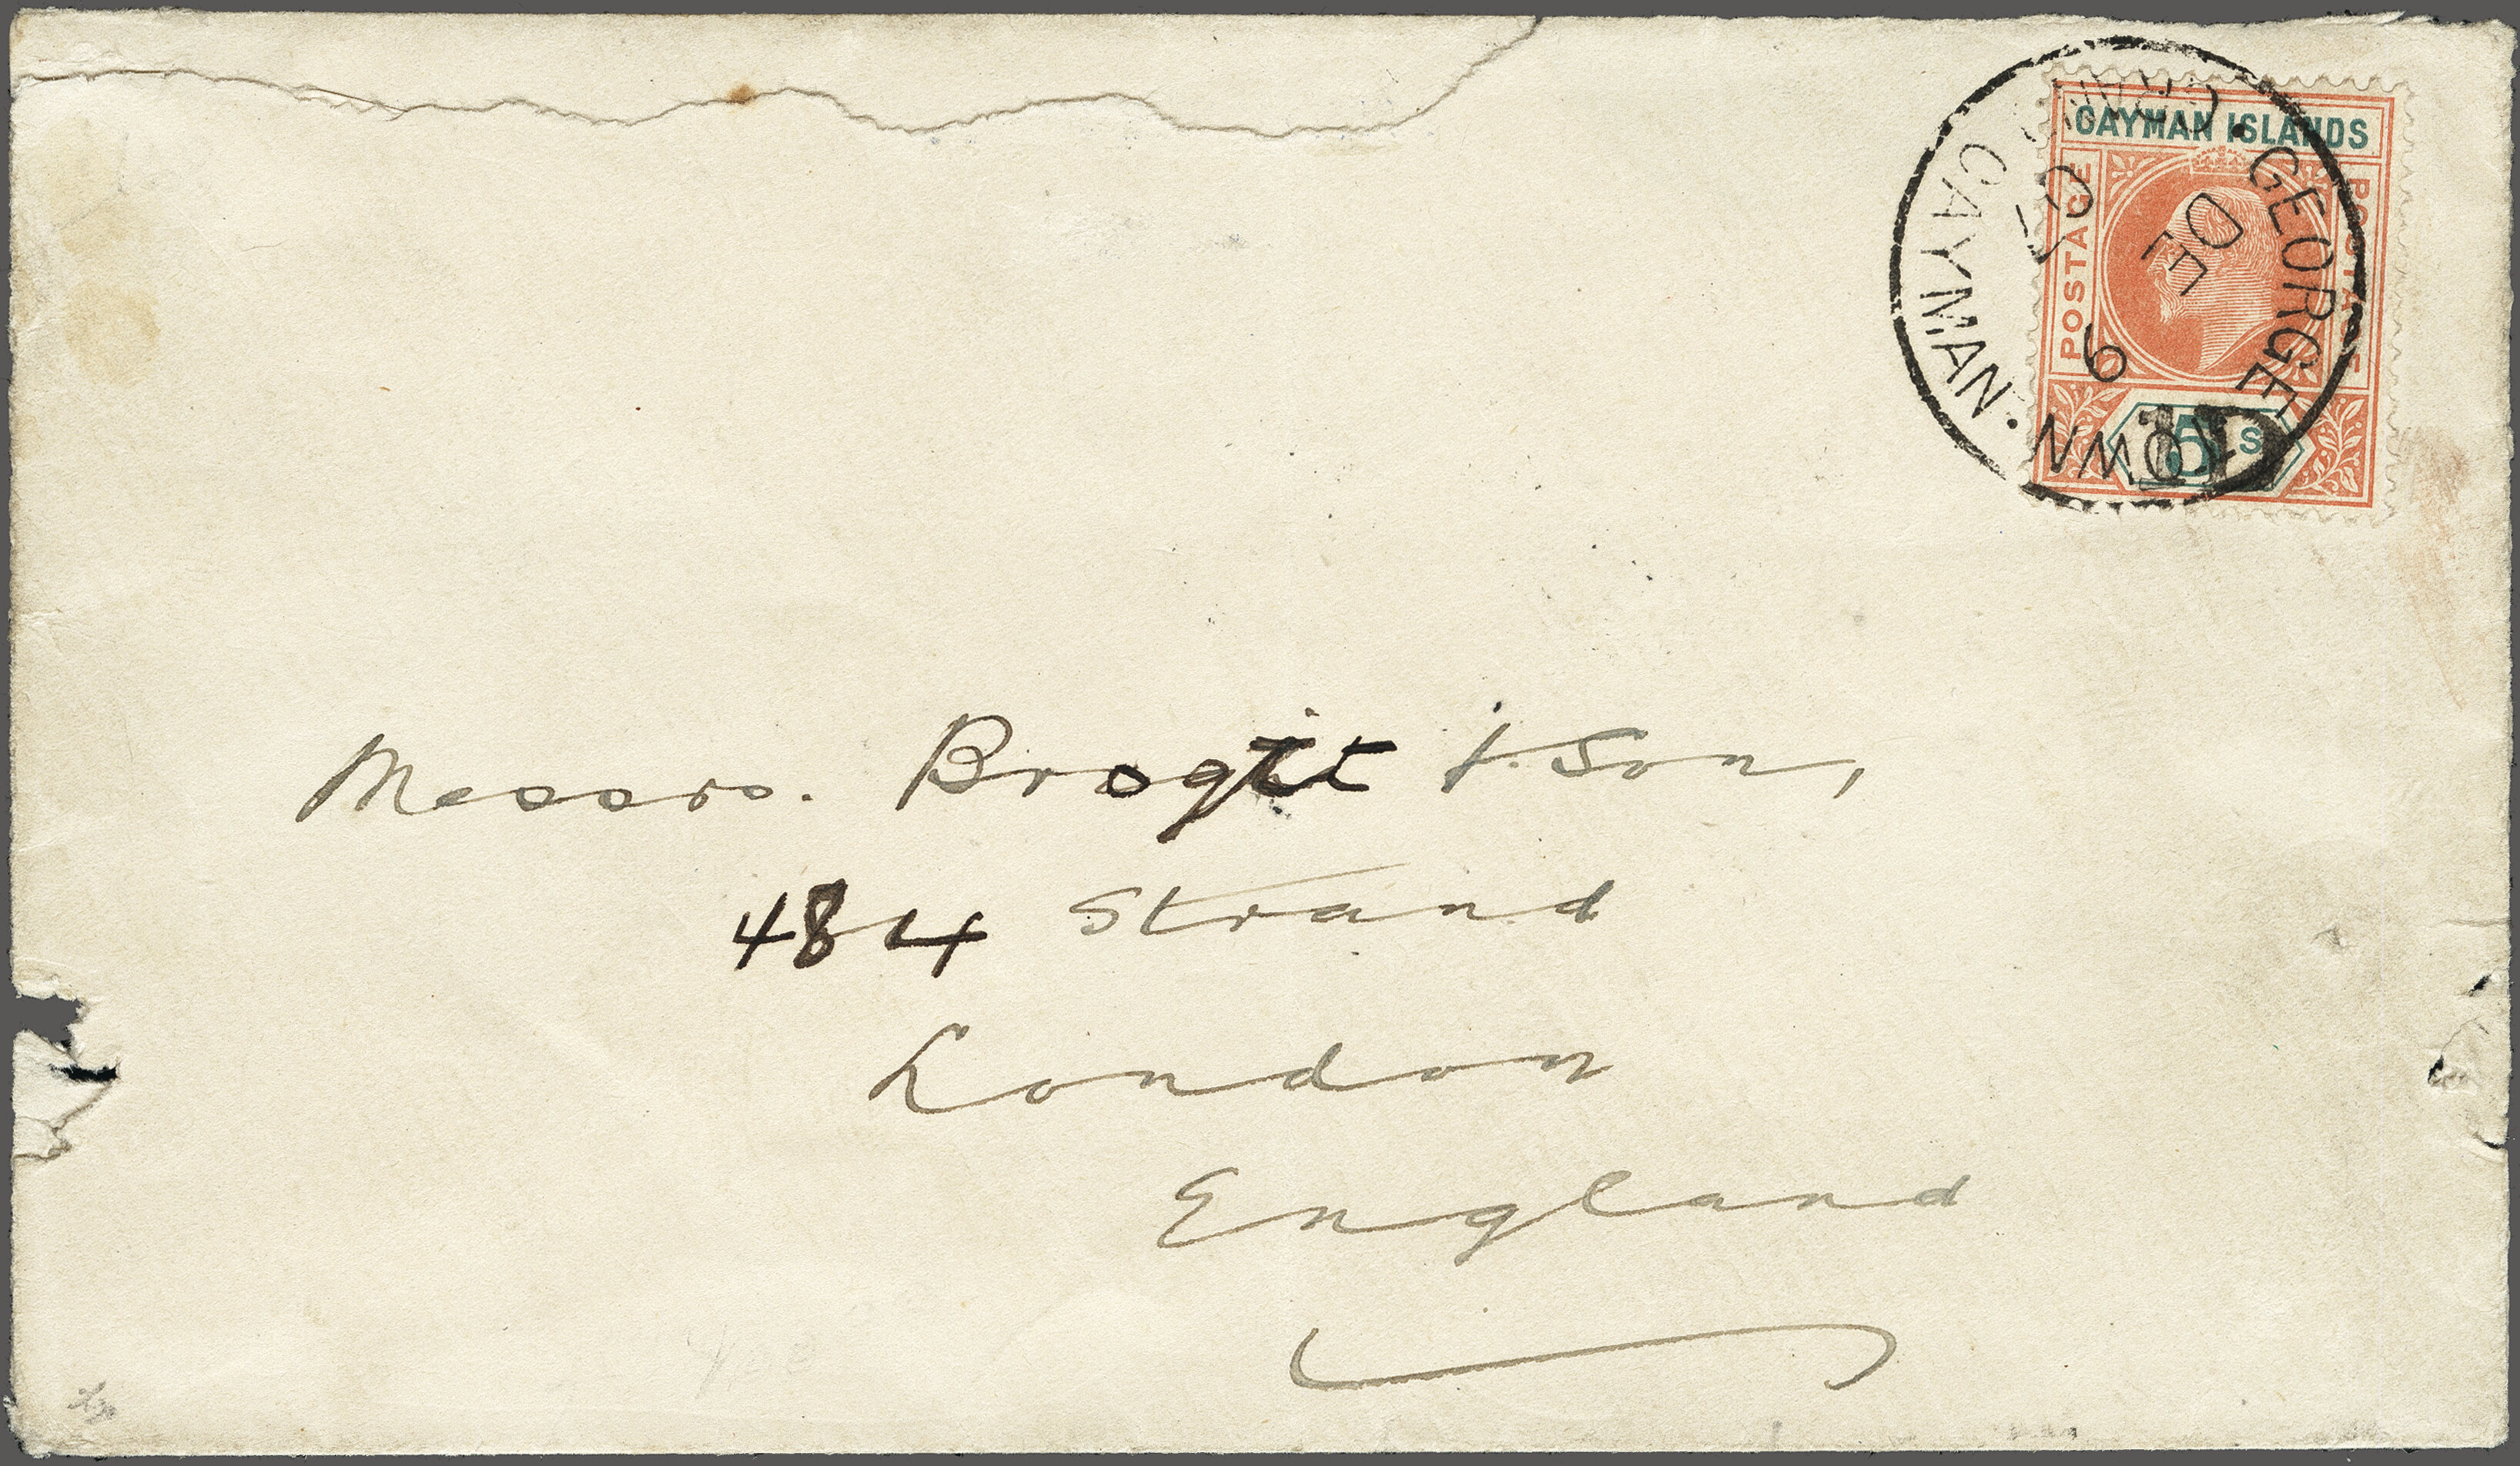 CAYMAN ISLANDS
POSTAGE
POSTAGE
5 s
GEORGETOWN.
CAYMAN.
DE 9
07
Messrs. Brogit & Son,
484 Strand
London
England